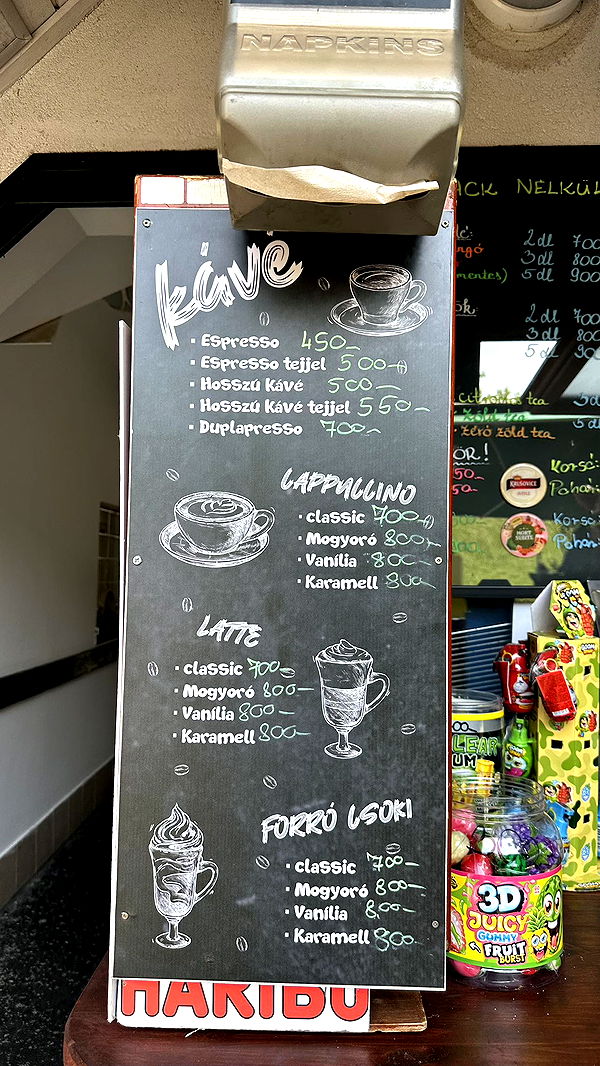 NAPKINS
kávé
Espresso 450-
Espresso tejjel 500-
Hosszú Kávé 500-
Hosszú Kávé tejjel 550-
Duplapresso 700-
CAPPUCCINO
classic 700-
Mogyoró 800-
Vanília 800-
Karamell 800
LATTE
classic 700-
Mogyoró 800-
Vanília 800-
Karamell 800-
FORRÓ CSOKI
classic 700-
Mogyoró 800-
Vanília 800-
Karamell 800-
HARIBO
NÉLKÜL
2 dl 700
3 dl 800
5 dl 900
mentes)
2 dl 700
3 dl 800
5 dl 900
citromos tea
zöld tea
zéró zöld tea
KRUŠOVICE
Korsó:
Pohár:
MORT SUBITE
Korsó:
Pohár:
3D
JUICY
GUMMY
FRUIT
BURST